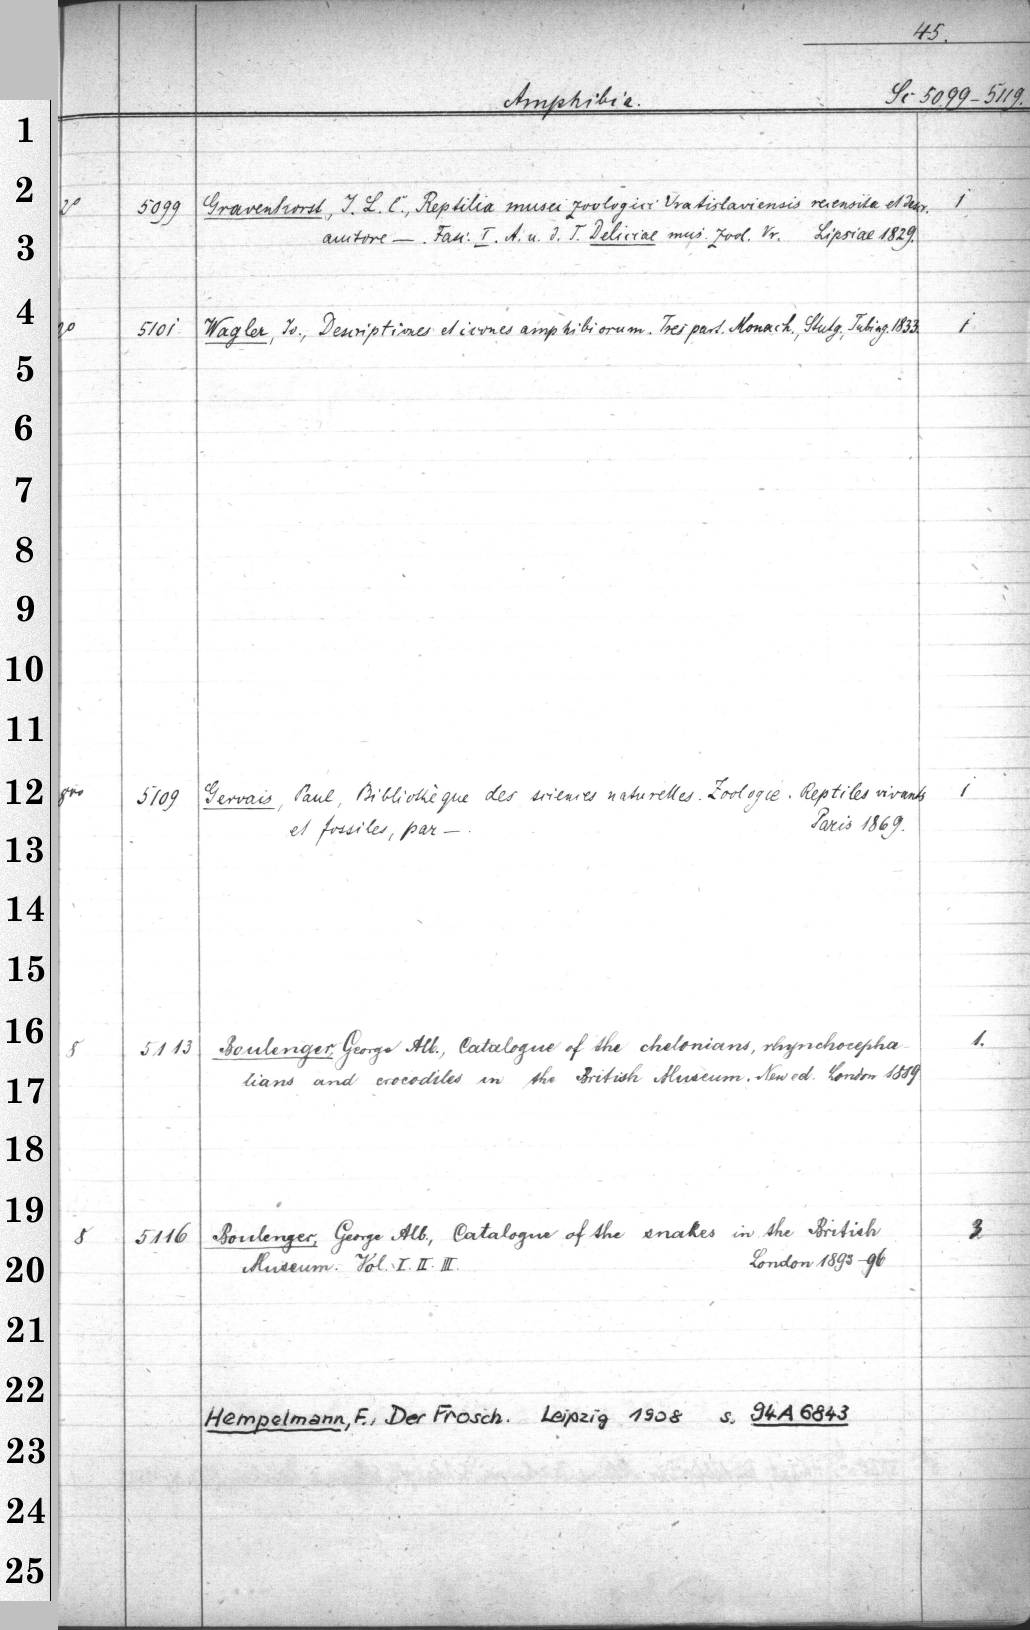 45.
Amphibia. Sc 5099-5119.
2° 5099 Gravenhorst, I. L. C., Reptilia musei zoologici Vratislaviensis recensita et descr. 1
auctore —. Fasc. I. A. u. d. T. Deliciae mus. zool. Vr. Lipsiae 1829.
2° 5101 Wagler, Jo., Descriptiones et icones amphibiorum. Tres part. Monach., Stutg., Tubing. 1833. 1
8vo 5109 Gervais, Paul, Bibliothèque des sciences naturelles. Zoologie. Reptiles vivants 1
et fossiles, par —. Paris 1869.
8 5113 Boulenger, George Alb., Catalogue of the chelonians, rhynchocepha- 1.
lians and crocodiles in the British Museum. New ed. London 1889
8 5116 Boulenger, George Alb., Catalogue of the snakes in the British 3
Museum. Vol. I. II. III. London 1893-96
Hempelmann, F., Der Frosch. Leipzig 1908 s. 94A6843
1
2
3
4
5
6
7
8
9
10
11
12
13
14
15
16
17
18
19
20
21
22
23
24
25